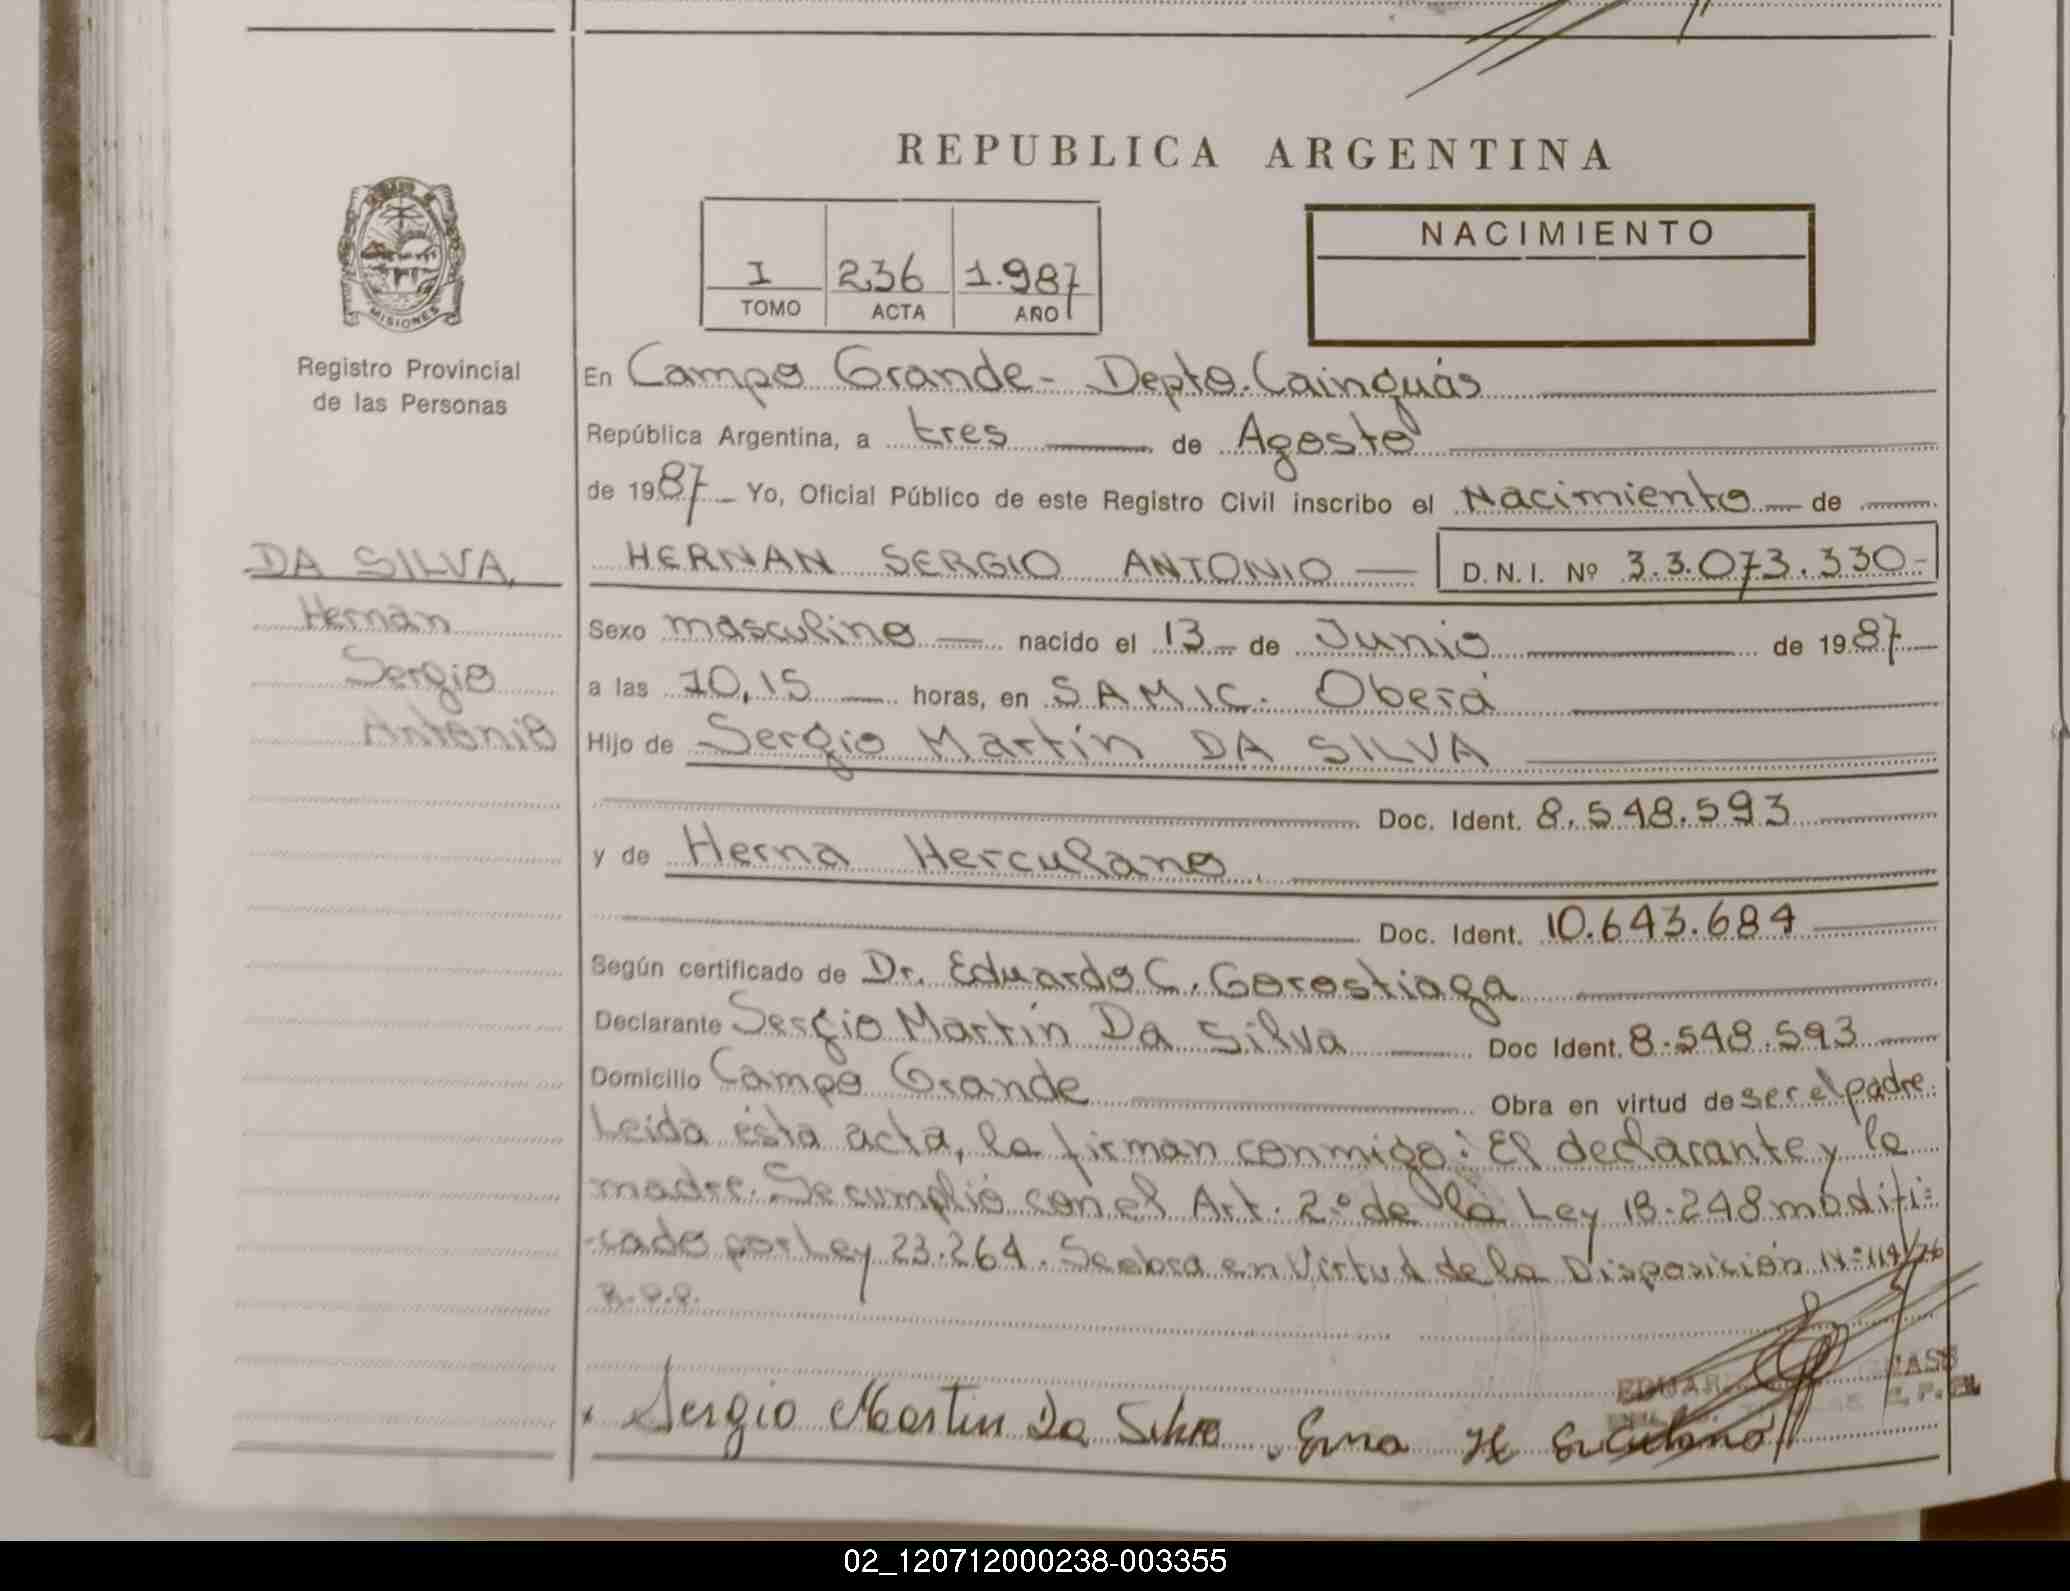 REPUBLICA ARGENTINA
MISIONES
Registro Provincial
de las Personas
I 236 1.987
TOMO ACTA AÑO
NACIMIENTO
En Campo Grande - Depto. Cainguás
República Argentina, a tres de Agosto
de 1987 Yo, Oficial Público de este Registro Civil inscribo el Nacimiento de
DA SILVA,
Hernan
Sergio
Antonio
HERNAN SERGIO ANTONIO D.N.I. Nº 33.073.330-
Sexo masculino nacido el 13 de Junio de 1987
a las 10,15 horas, en SAMIC. Oberá
Hijo de Sergio Martín DA SILVA
Doc. Ident. 8.548.593
y de Herna Herculano
Doc. Ident. 10.643.684
Según certificado de Dr. Eduardo C. Gorostiaga
Declarante Sergio Martín Da Silva Doc Ident. 8.548.593
Domicilio Campo Grande Obra en virtud de ser el padre.
Leida ésta acta, la firman conmigo: El declarante y la
madre. Se cumplió con el Art. 2º de la Ley 18.248 modifi-
-cado por Ley 23.264. Se obra en Virtud de la Disposición Nº 114/76
R.P.P.
Sergio Martin Da Silva Erna H
02_120712000238-003355